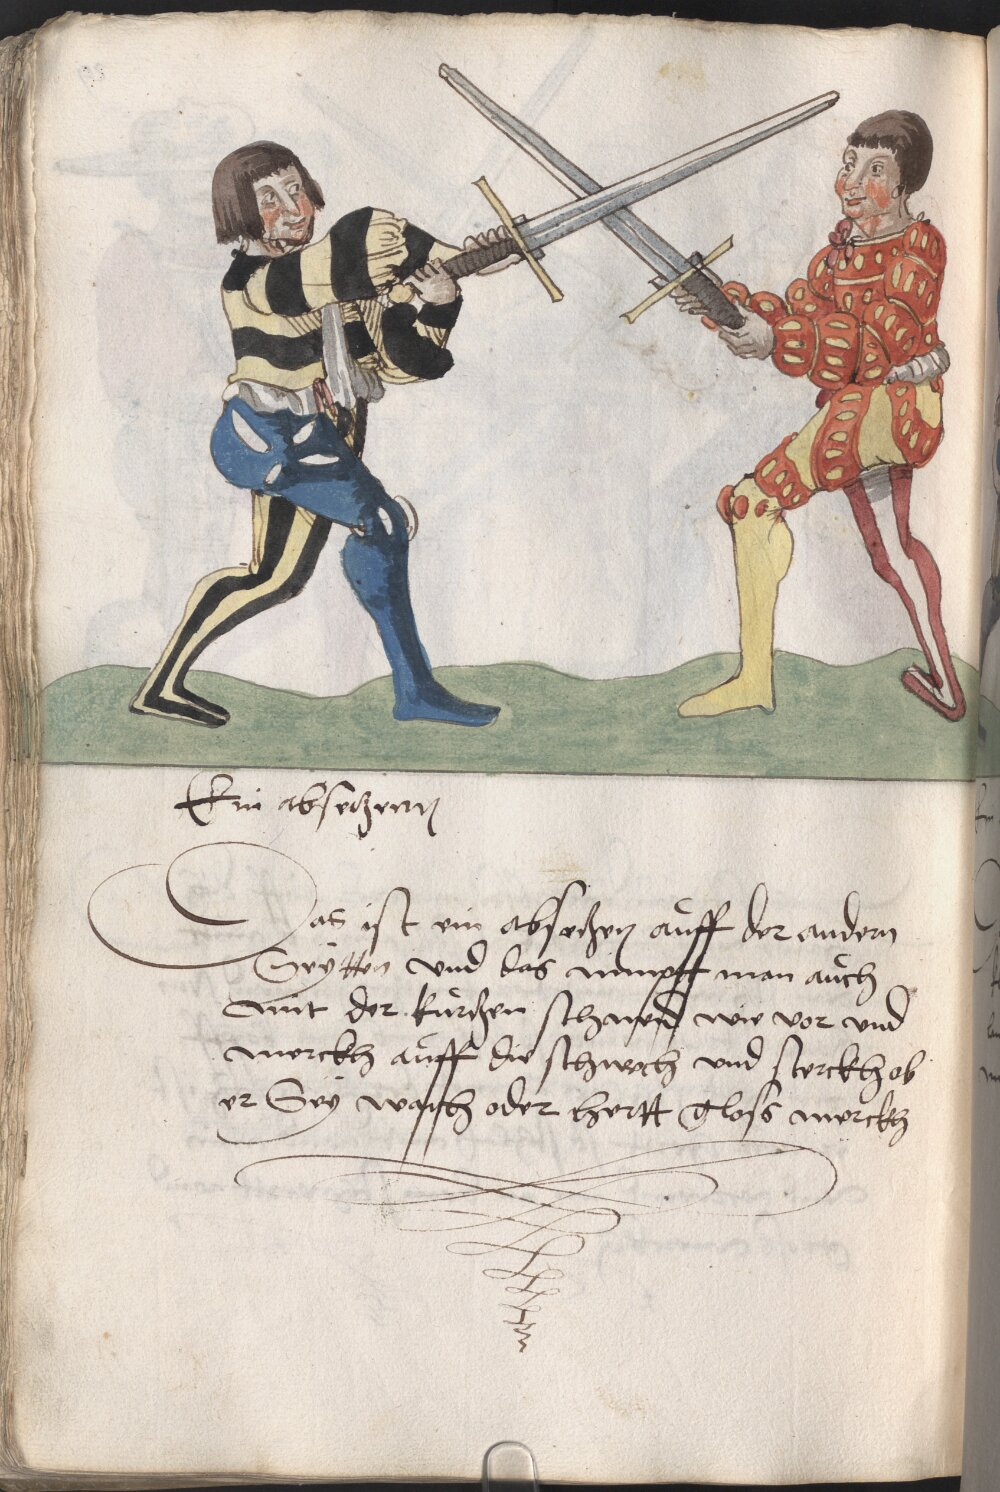 Ein absetzenn
Das ist ein absetzen aůff der andern
Seÿtten vnd das nimptt man aůch
mit der kůrtzen schneid wie vor vnd
merckh aůff die schwech vnd sterckh ob
er Seÿ waich oder hertt Gloss merckh